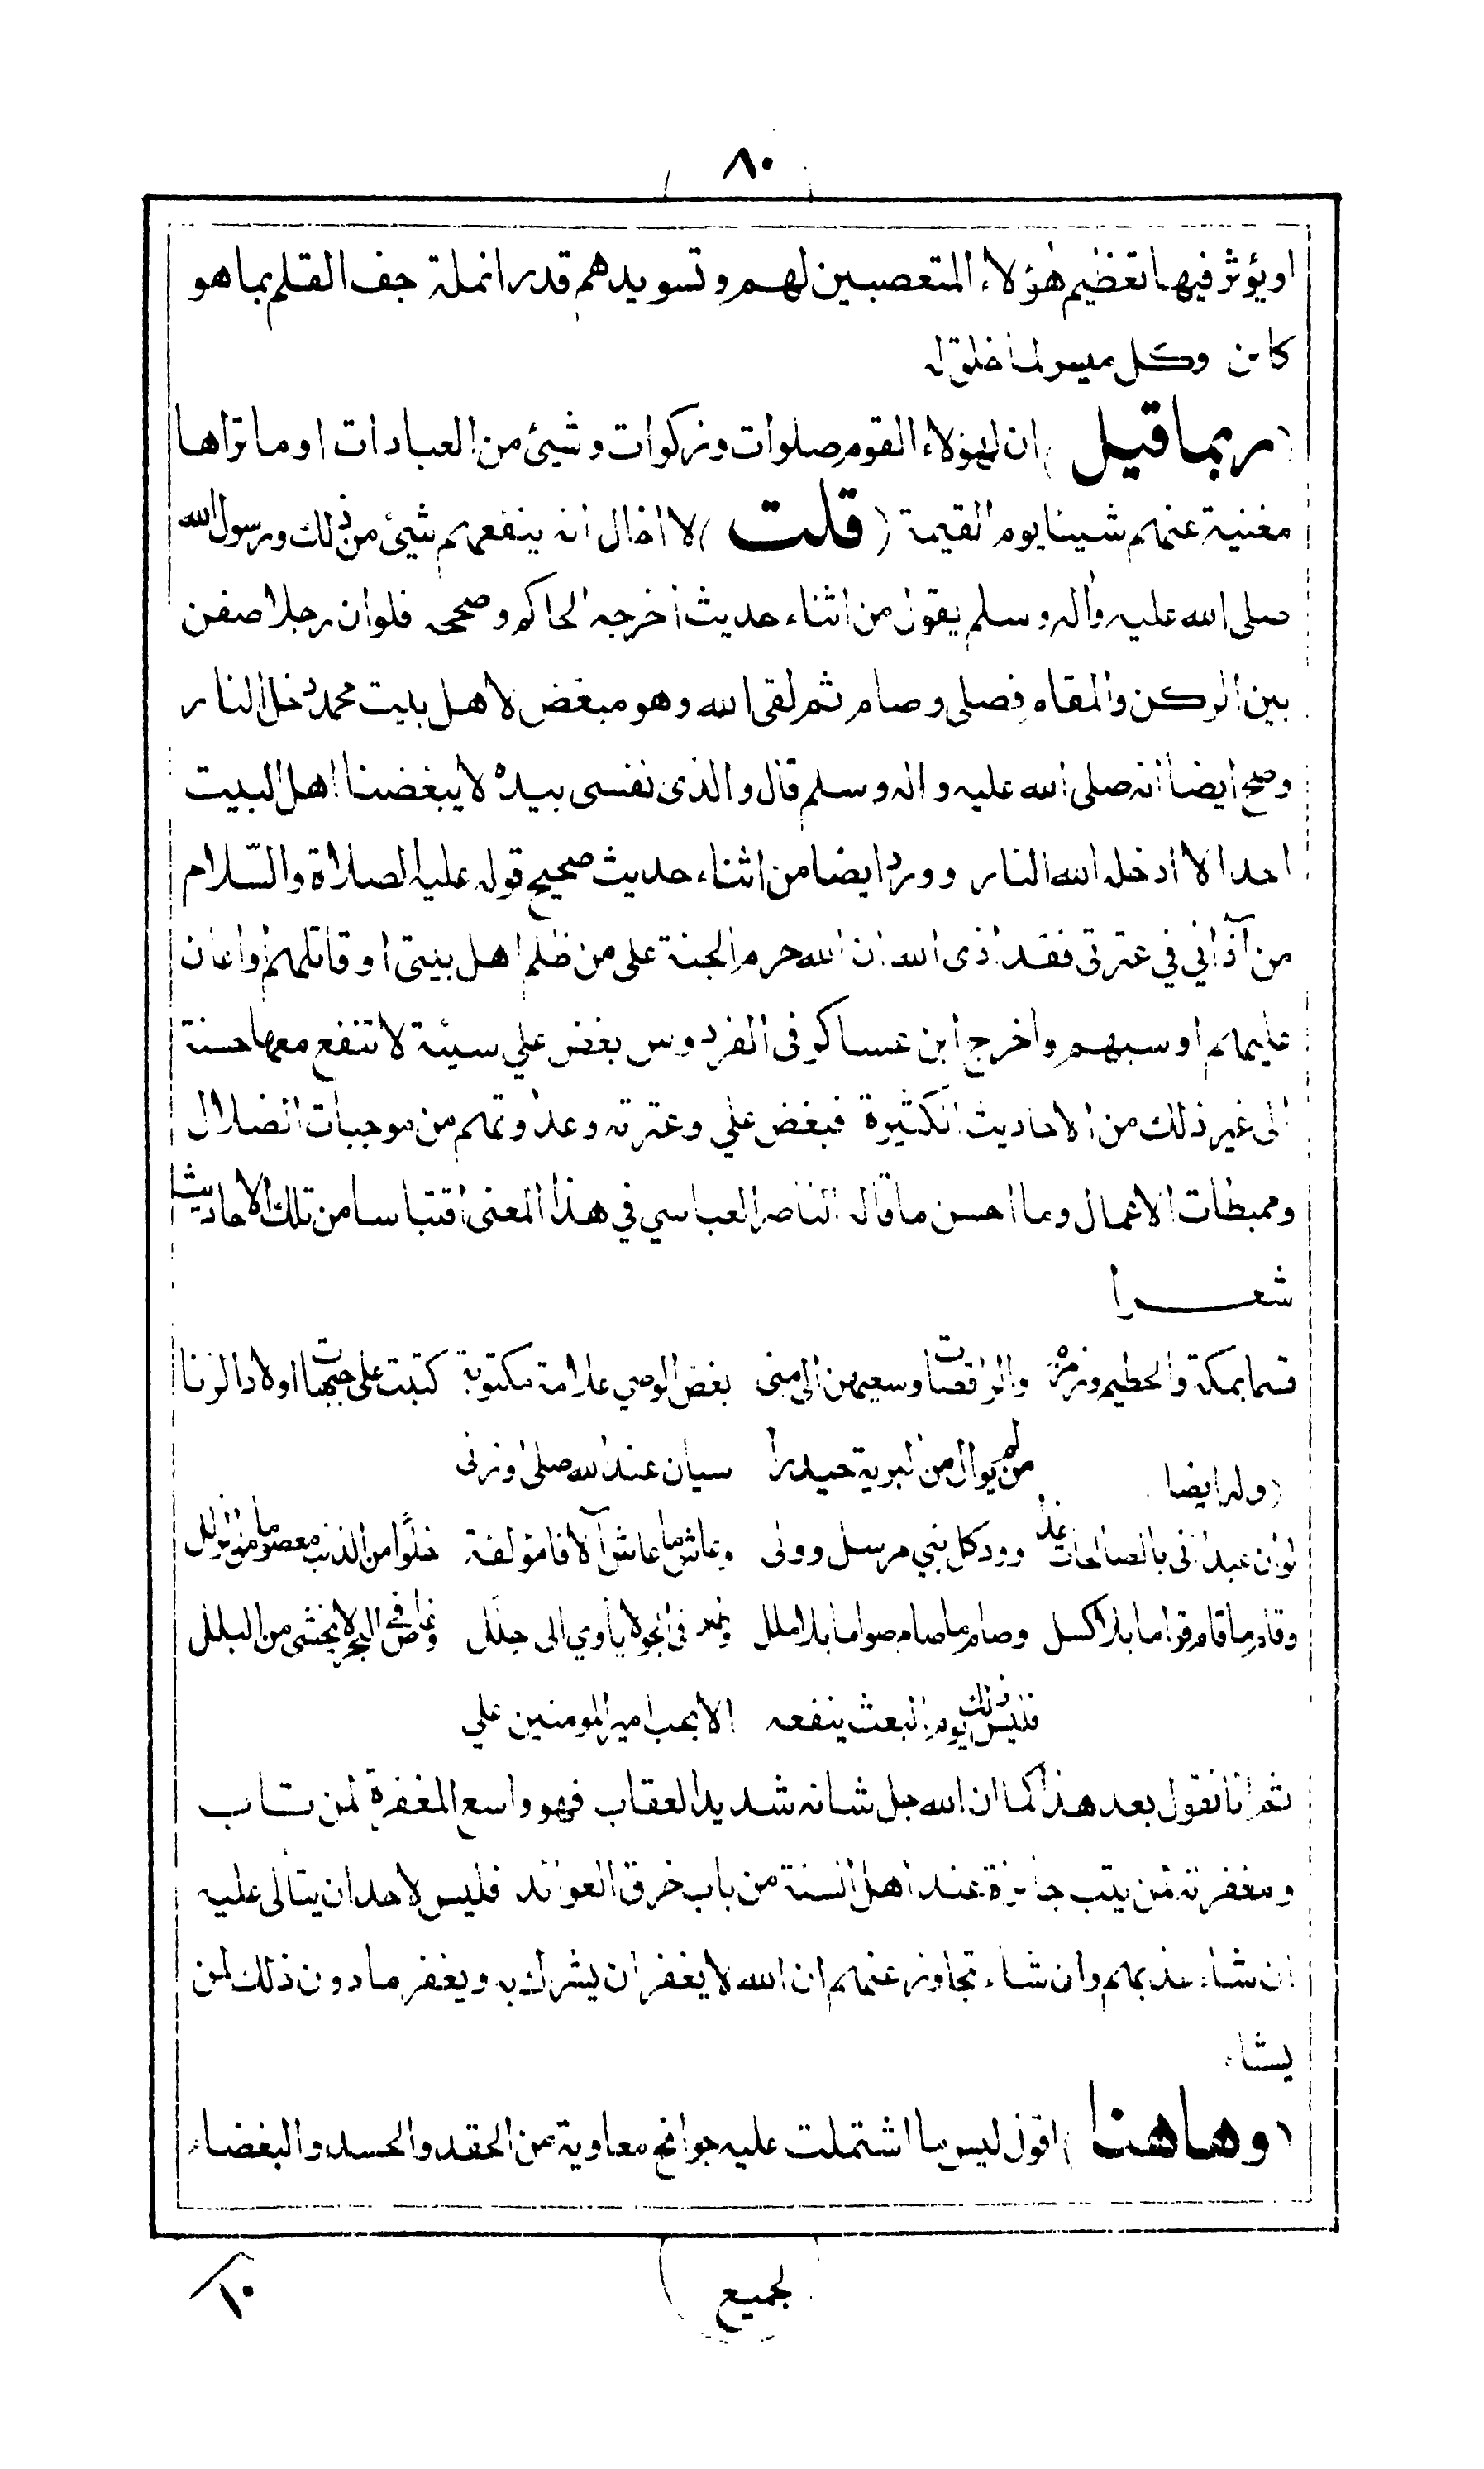 ٨٠
او يؤثر فيها تعظيم هؤلاء المتعصبين لهم وتسويدهم قدر انملة جف القلم بما هو
كائن وكل ميسر لما خلق له
(ربما قيل) ان لهؤلاء القوم صلوات وزكوات وشيئ من العبادات او ما تراها
مغنية عنهم شيئا يوم القيمة (قلت) لا اخال انه ينفعهم شيئ من ذلك ورسول الله
صلى الله عليه وآله وسلم يقول من اثناء حديث أخرجه الحاكم وصححه فلو ان رجلا صفن
بين الركن والمقام فصلى وصام ثم لقى الله وهو مبغض لاهل بيت محمد دخل النار
وصح ايضا انه صلى الله عليه واله وسلم قال والذي نفسي بيده لا يبغضنا اهل البيت
احد الا ادخله الله النار وورد ايضا من اثناء حديث صحيح قوله عليه الصلاة والسّلام
من آذاني في عترتي فقد اذى الله ان الله حرم الجنة على من ظلم اهل بيتي او قاتلهم أو اعان
عليهم او سبهم وأخرج ابن عساكر في الفردوس بغض علي سيئة لا تنفع معها حسنة
الى غير ذلك من الاحاديث الكثيرة فبغض علي وعترته وعداوتهم من موجبات الضلال
ومحبطات الاعمال وما احسن ما قاله الناصر العباسي في هذا المعنى اقتباسا من تلك الاحاديث
شعرا
قسما بمكة والحطيم وزمزم والراقصات وسعيهن الى منى بغض الوصي علامة مكتوبة كتبت على جبهات اولاد الزنا
من لم يوال من البرية حيدرا سيان عند الله صلى او زنى
(وله ايضا
لو ان عبدا اتى بالصالحات غدا وود كل نبي مرسل وولى وعاش ما عاش آلافا مؤلفة خلوًا من الذنب معصوما من الزلل
وقام ما قام قواما بلا كسل وصام ما صام صواما بلا ملل في الجو لا يأوي الى جبل البحر لا يخشى من البلل
فليس ذلك يوم البعث ينفعه الا بحب امير المومنين علي
ثم انا نقول بعد هذا كما ان الله جل شانه شديد العقاب فهو واسع المغفرة لمن تاب
ومغفرته لمن يتب جائزة عند اهل السنة من باب خرق العوائد فليس لاحد ان يتألى عليه
ان شاء عذبهم وان شاء تجاوز عنهم ان الله لا يغفر ان يشرك به ويغفر ما دون ذلك لمن
يشاء
(وهاهنا) اقول ليس ما اشتملت عليه جوانح معاوية من الحقد والحسد والبغضاء
لجميع
١٠